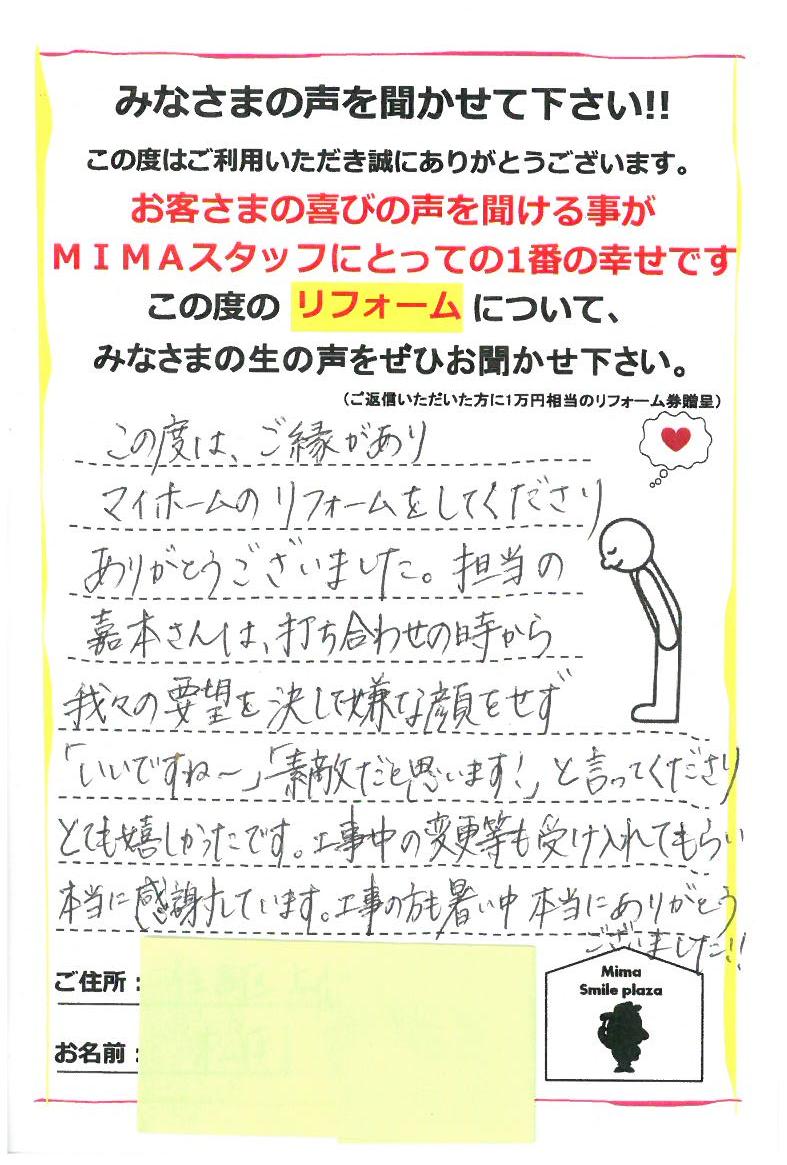 みなさまの声を聞かせて下さい!!
この度はご利用いただき誠にありがとうございます。
お客さまの喜びの声を聞ける事が
ＭＩＭＡスタッフにとっての1番の幸せです
この度の リフォーム について、
みなさまの生の声をぜひお聞かせ下さい。
（ご返信いただいた方に1万円相当のリフォーム券贈呈）
この度は、ご縁があり
マイホームのリフォームをしてくださり
ありがとうございました。担当の
嘉本さんは、打ち合わせの時から
我々の要望を決して嫌な顔をせず
「いいですね〜」「素敵だと思います!」と言ってくださり
とても嬉しかったです。工事中の変更等も受け入れてもらい
本当に感謝しています。工事の方も暑い中 本当にありがとう
ございました!!
ご住所：
お名前：
Mima
Smile plaza